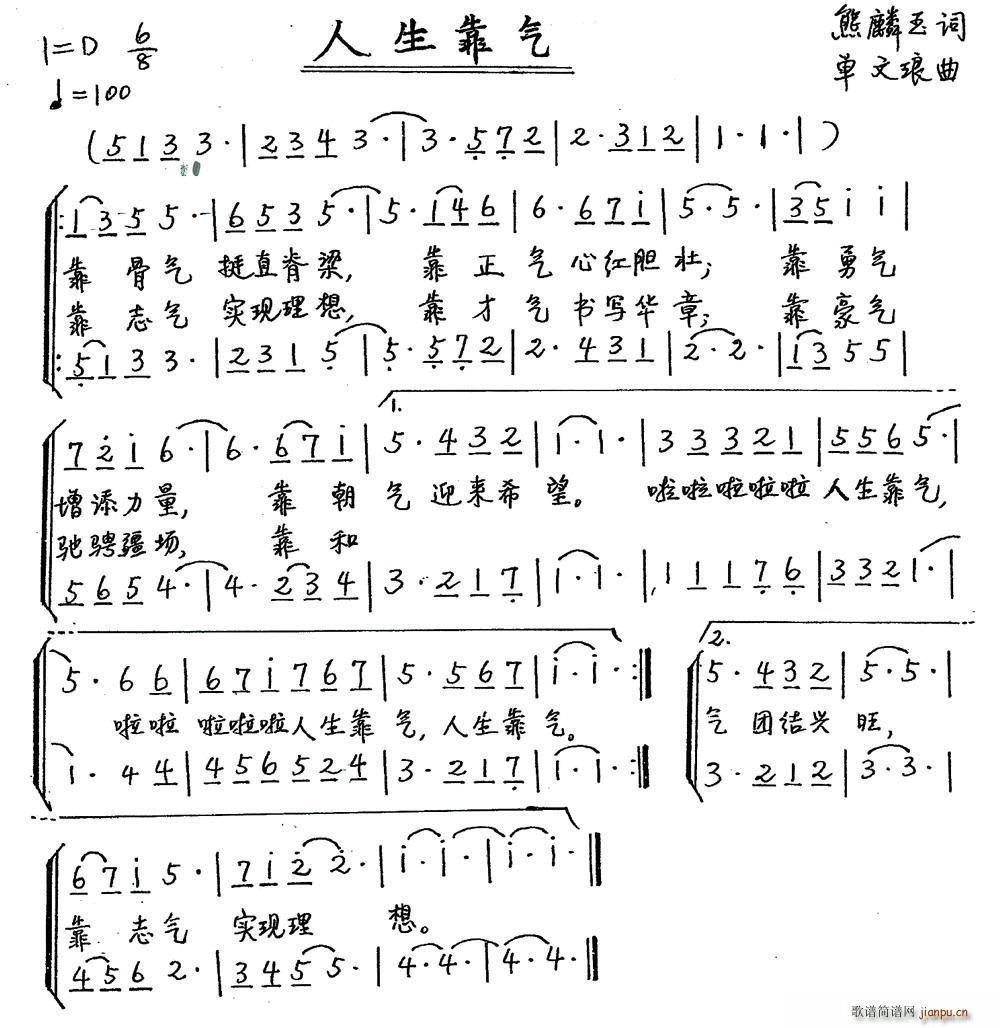 人生靠气
1=D 6/8
♩=100
熊麟玉词
单文琅曲
(5133·|2343·|3·572|2·312|1·1·|)
1355 5·|6535·|5·146|6·671|5·5·|3511|
靠骨气 挺直脊梁, 靠正气心红胆壮; 靠勇气
靠志气 实现理想, 靠才气书写华章; 靠豪气
5133·|2315|5·572|2·431|2·2·|1355|
1.
7216·|6·671|5·432|1·1·|33321|5565·|
增添力量, 靠朝气迎来希望。 啦啦啦啦啦人生靠气,
驰骋疆场, 靠和
5654·|4·234|3·217|1·1·|11176|3321·|
2.
5·66|671767|5·567|1·1·:‖ 5·432|5·5·|
啦啦 啦啦啦人生靠气, 人生靠气。 气团结兴旺,
1·44|456524|3·217|1·1·:‖ 3·212|3·3·|
6715·|7122·|1·1·|1·1·‖
靠志气 实现理想。
4562·|3455·|4·4·|4·4·‖
歌谱简谱网 jianpu.cn